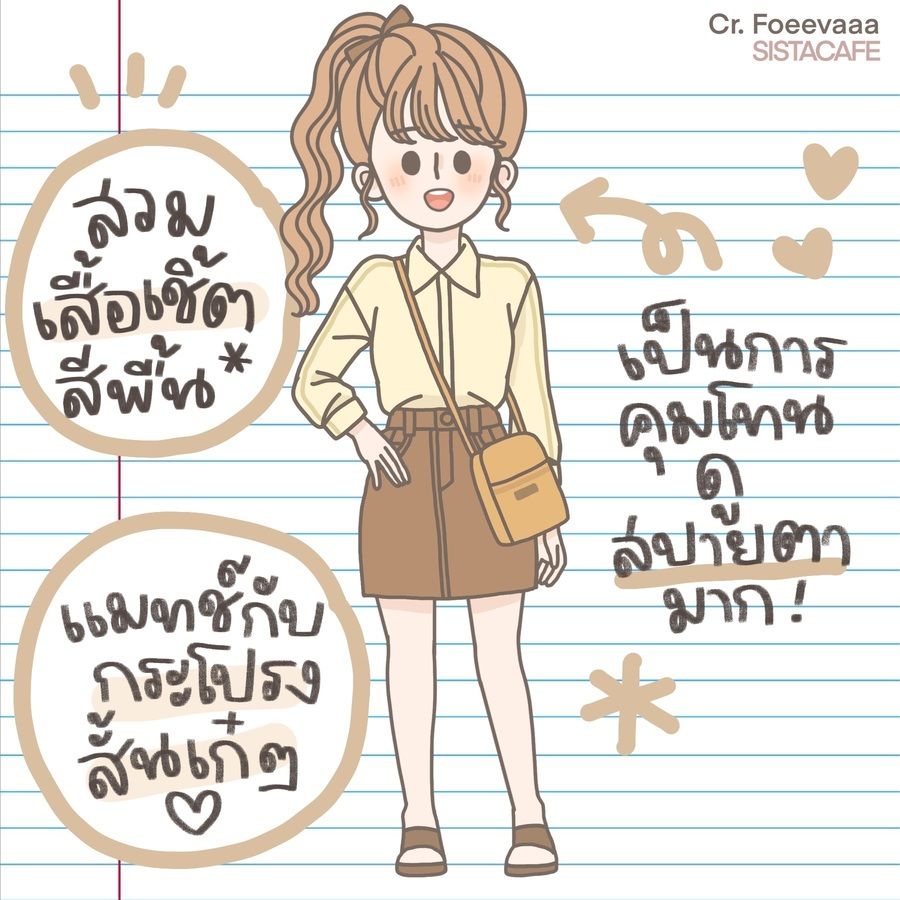 Cr. Foeevaaa
SISTACAFE
สวม
เสื้อเชิ้ต
สีพื้น*
เป็นการ
คุมโทน
ดู
สบายตา
มาก!
แมทช์กับ
กระโปรง
สั้นเก๋ๆ